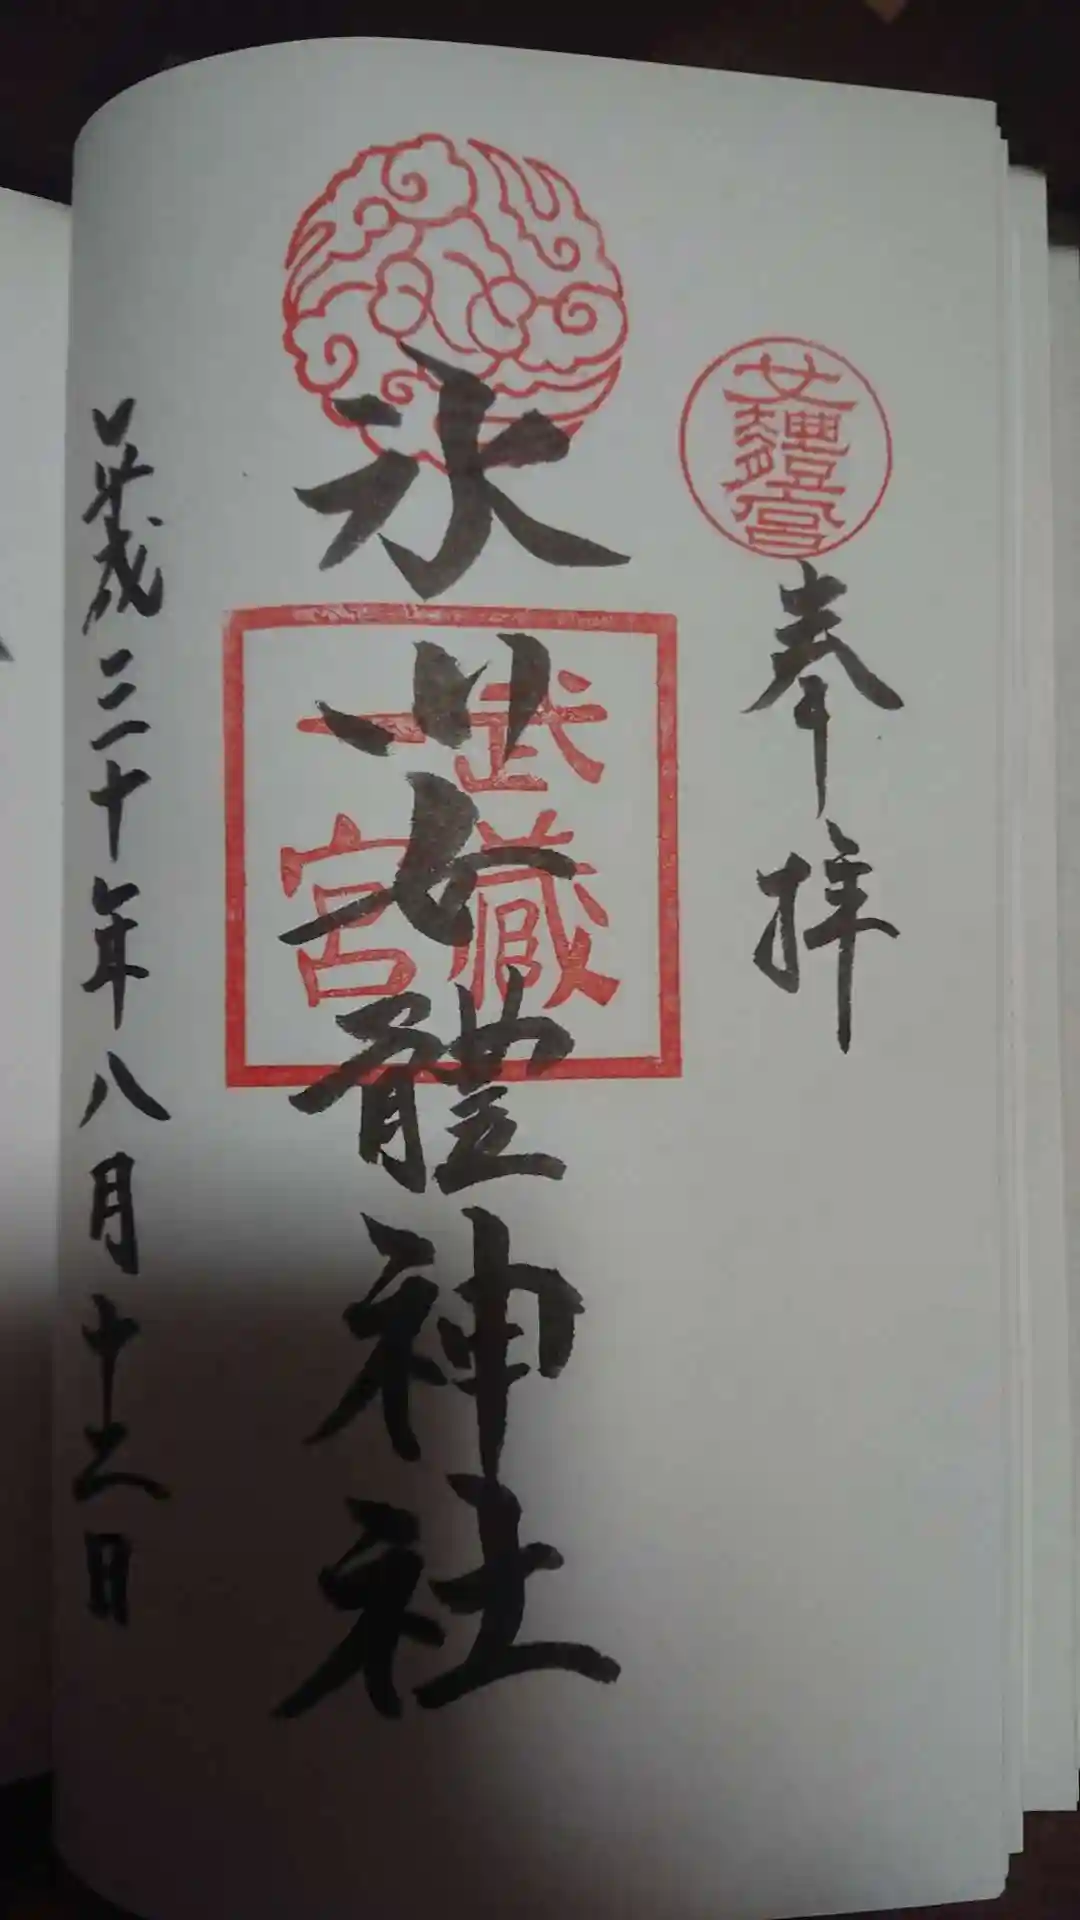 女體宮
奉拝
氷川女體神社
武蔵
一宮
平成三十年八月十三日